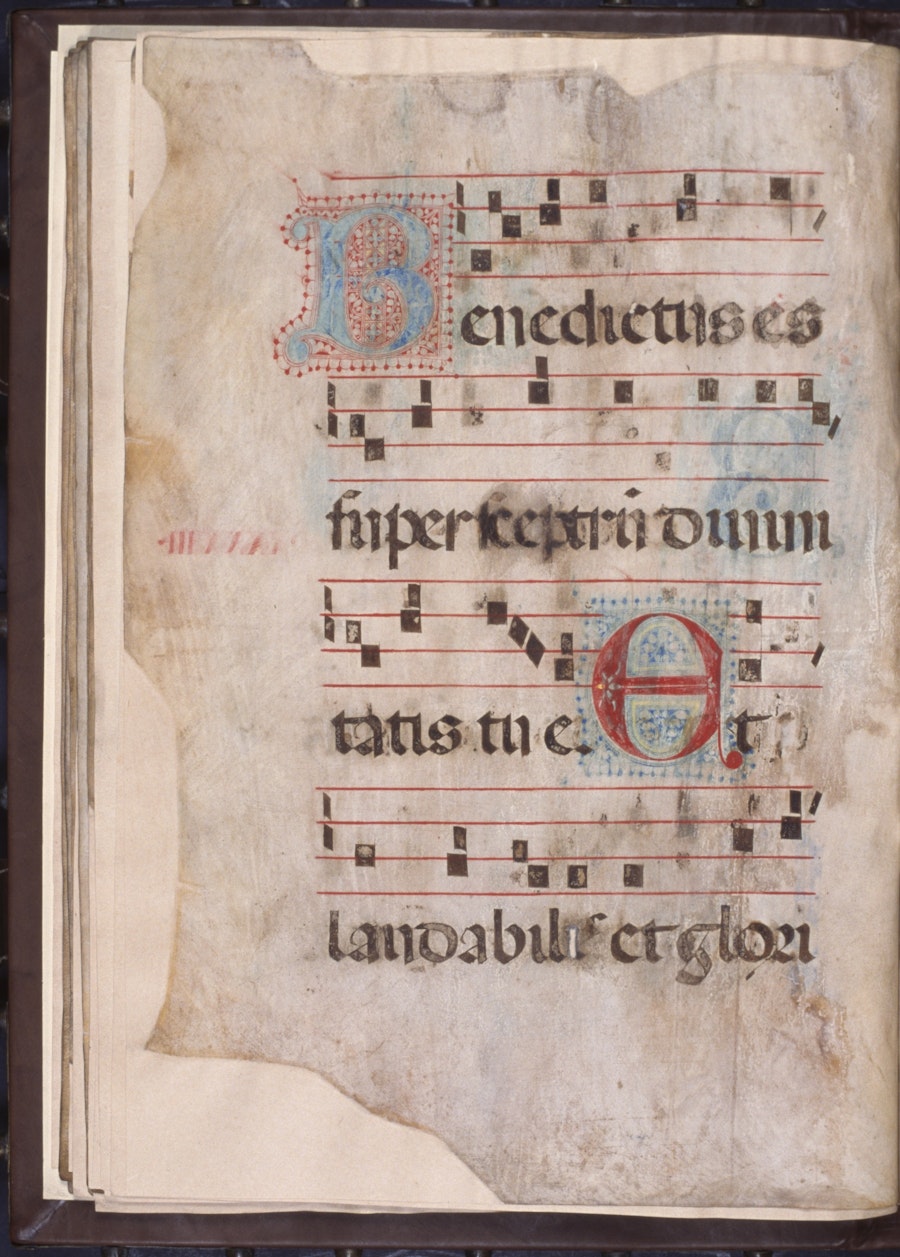 Benedictus es
super sceptrū diuini
tatis tue. Et
laudabilis et glori